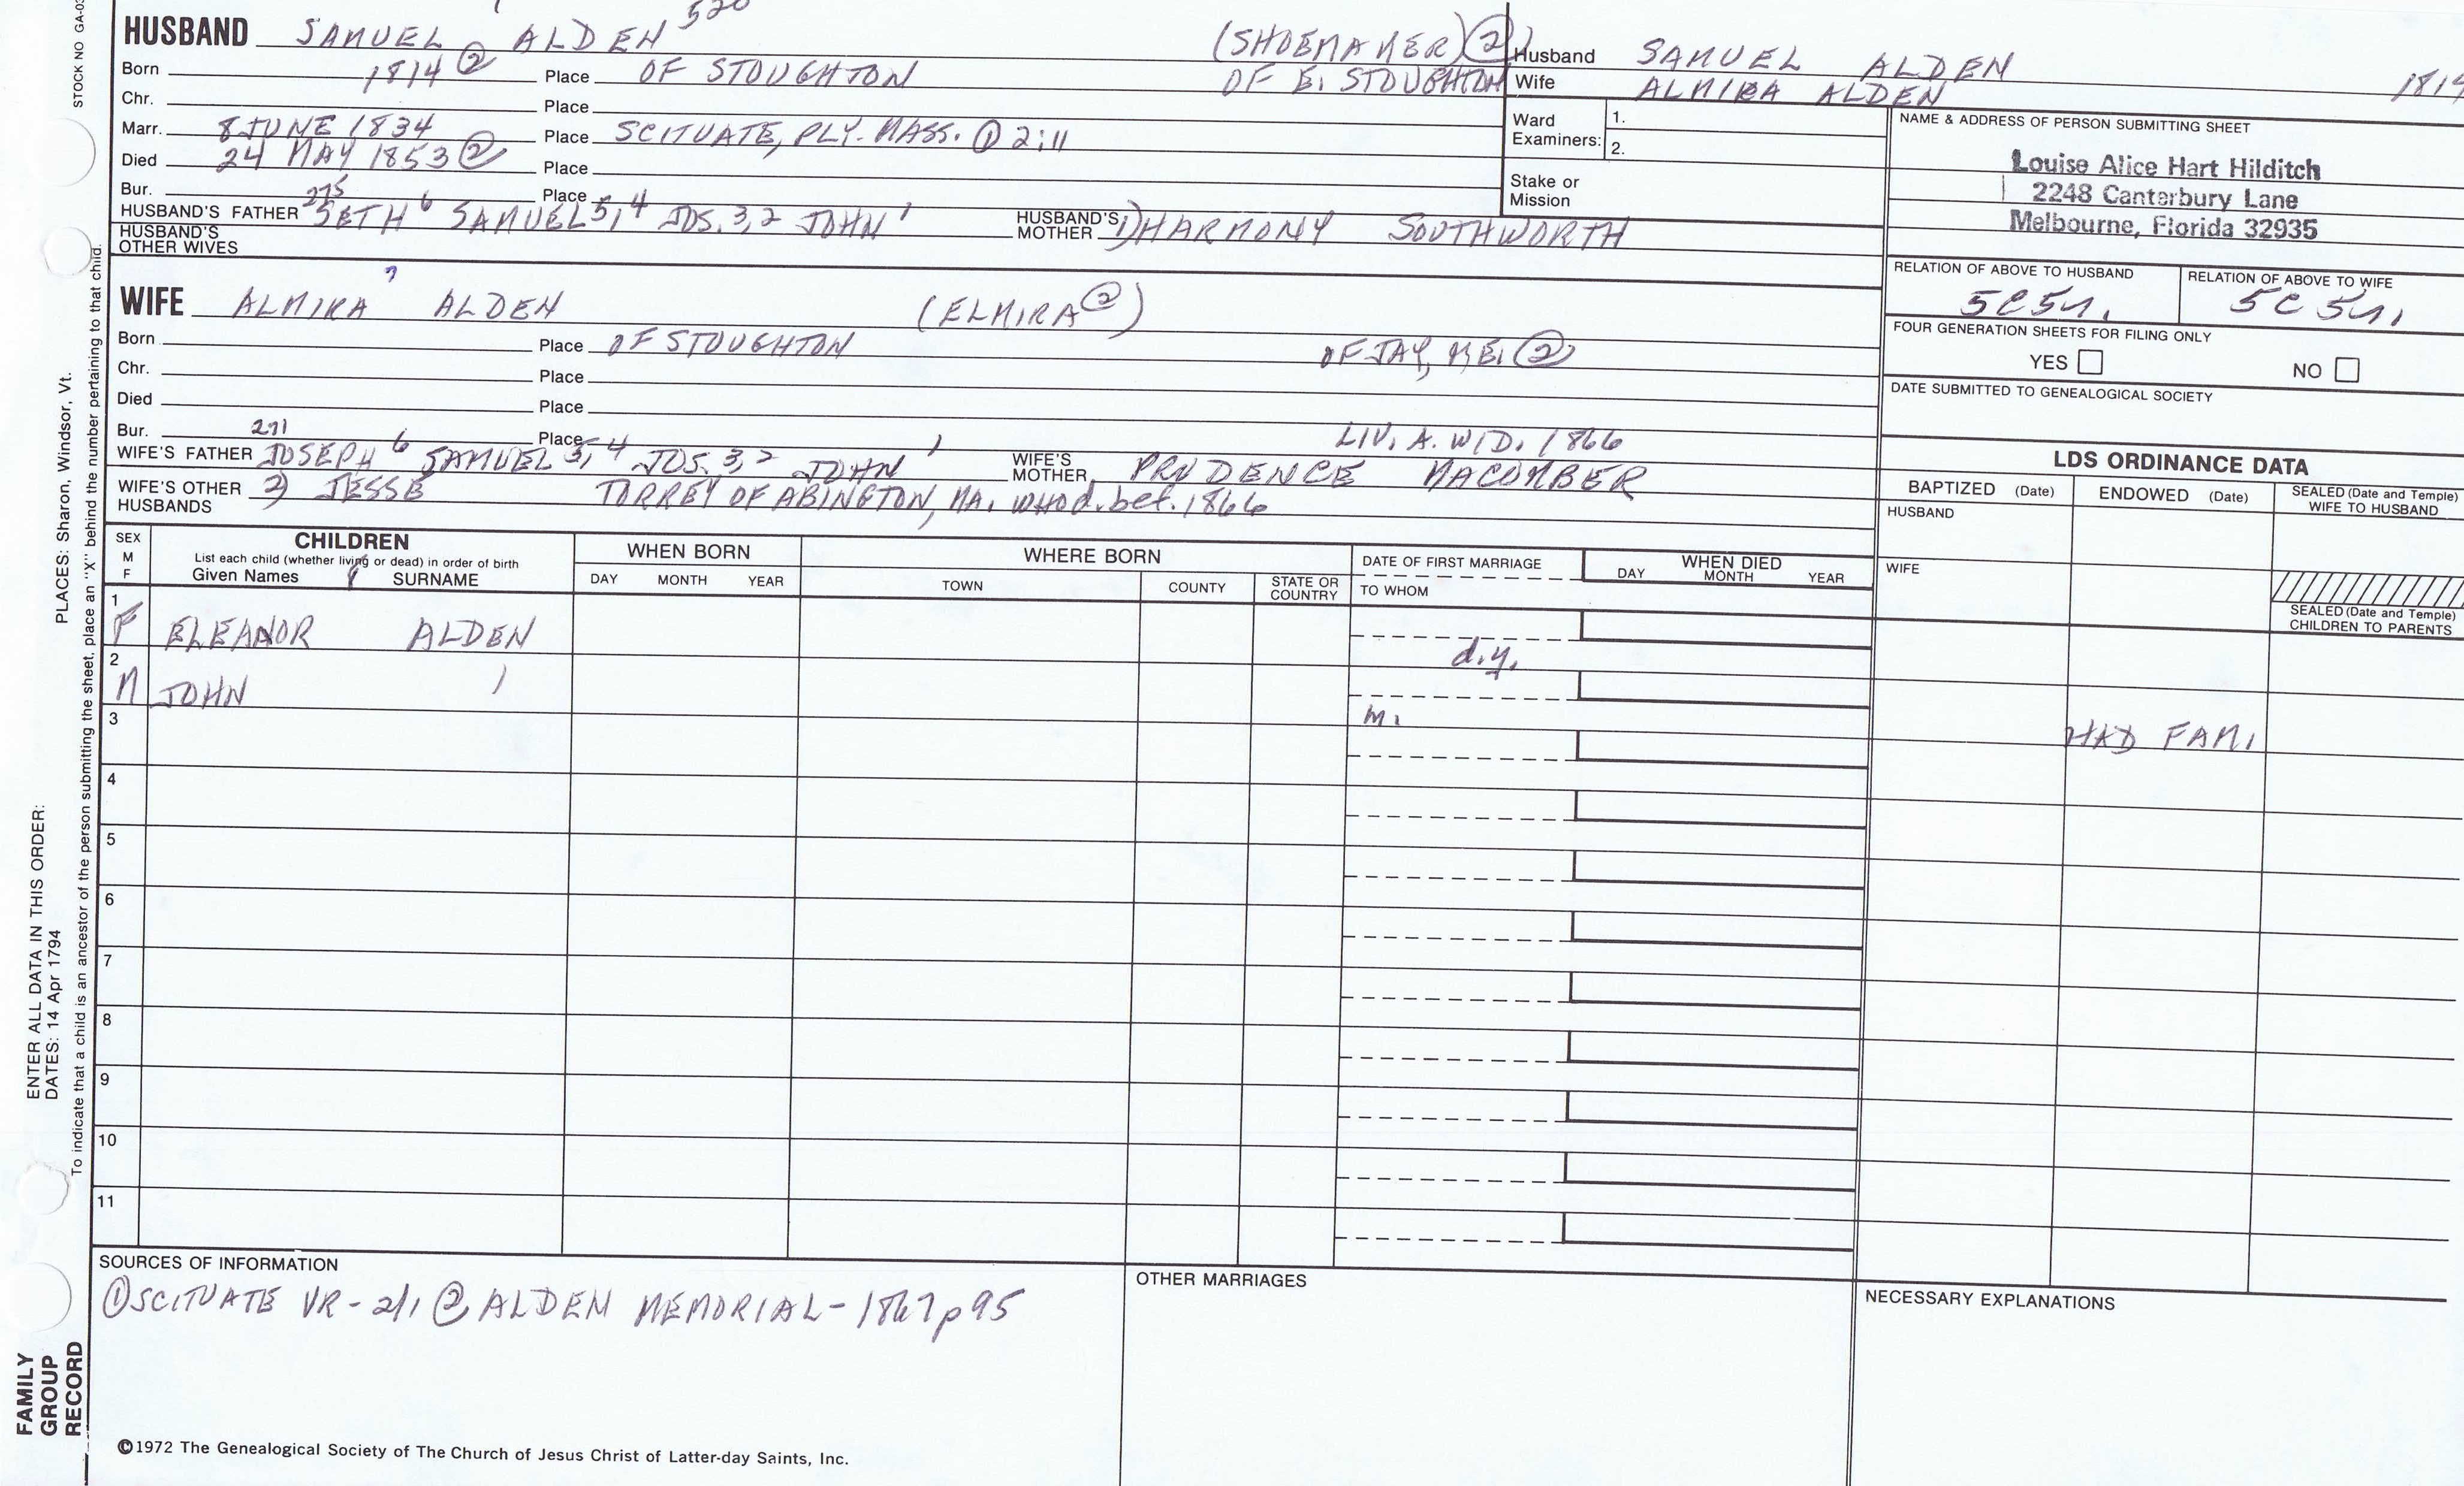 STOCK NO GA-03
HUSBAND SAMUEL ALDEN 520 (SHOEMAKER) ②
Born 1814 ② Place OF STOUGHTON OF E. STOUGHTON
Chr. Place
Marr. 8 JUNE 1834 Place SCITUATE, PLY. MASS. ① 2:11
Died 24 MAY 1853 ② Place
Bur. Place
275
HUSBAND'S FATHER SETH 6 SAMUEL 5,4 JOS. 3,2 JOHN 1 HUSBAND'S MOTHER 1) HARMONY SOUTHWORTH
HUSBAND'S OTHER WIVES
WIFE ALMIRA 7 ALDEN (ELMIRA ②)
Born Place OF STOUGHTON OF JAY, ME. ②
Chr. Place
Died Place
Bur. Place LIV. A. WID. 1866
271
WIFE'S FATHER JOSEPH 6 SAMUEL 5,4 JOS. 3,2 JOHN 1 WIFE'S MOTHER PRUDENCE MACOMBER
WIFE'S OTHER HUSBANDS 2) JESSE TORREY OF ABINGTON, MA. who d. bef. 1866
Husband SAMUEL ALDEN 181
Wife ALMIRA ALDEN
Ward Examiners: 1.
2.
Stake or Mission
NAME & ADDRESS OF PERSON SUBMITTING SHEET
Louise Alice Hart Hilditch
2248 Canterbury Lane
Melbourne, Florida 32935
RELATION OF ABOVE TO HUSBAND RELATION OF ABOVE TO WIFE
5C5r. 5C5r.
FOUR GENERATION SHEETS FOR FILING ONLY
YES NO
DATE SUBMITTED TO GENEALOGICAL SOCIETY
LDS ORDINANCE DATA
BAPTIZED (Date) ENDOWED (Date) SEALED (Date and Temple) WIFE TO HUSBAND
HUSBAND
WIFE
SEALED (Date and Temple) CHILDREN TO PARENTS
SEX M F
CHILDREN
List each child (whether living or dead) in order of birth
Given Names SURNAME
WHEN BORN
DAY MONTH YEAR
WHERE BORN
TOWN COUNTY STATE OR COUNTRY
DATE OF FIRST MARRIAGE
TO WHOM
WHEN DIED
DAY MONTH YEAR
1
F ELEANOR ALDEN
d.y.
2
M JOHN
m. HAD FAM.
3
4
5
6
7
8
9
10
11
SOURCES OF INFORMATION
① SCITUATE VR - 2/1 ② ALDEN MEMORIAL - 1867 p 95
OTHER MARRIAGES
NECESSARY EXPLANATIONS
©1972 The Genealogical Society of The Church of Jesus Christ of Latter-day Saints, Inc.
PLACES: Sharon, Windsor, Vt.
To indicate that a child is an ancestor of the person submitting the sheet, place an "X" behind the number pertaining to that child.
ENTER ALL DATA IN THIS ORDER:
DATES: 14 Apr 1794
FAMILY
GROUP
RECORD